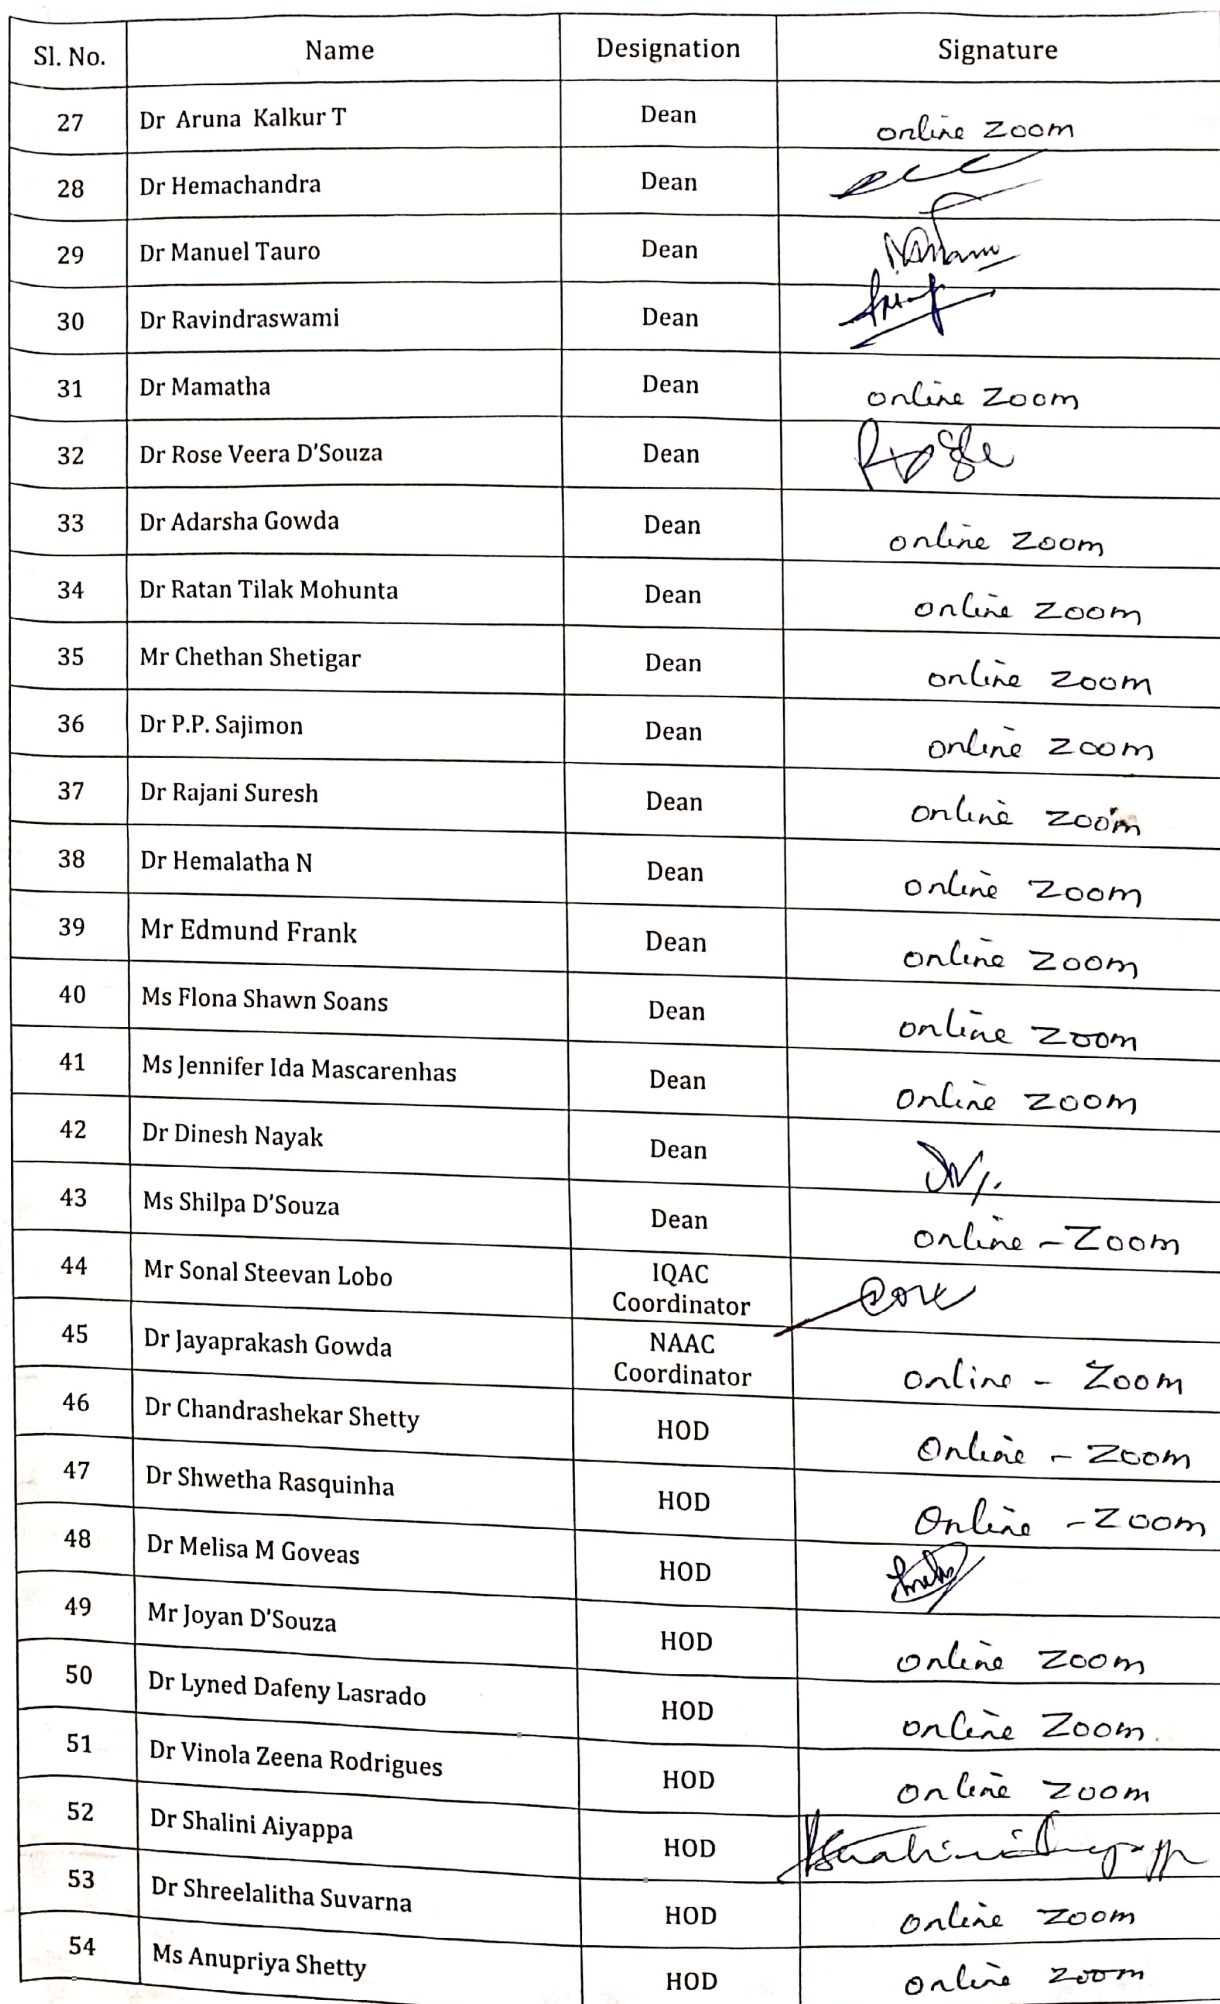 Sl. No. Name Designation Signature
27 Dr Aruna Kalkur T Dean online zoom
28 Dr Hemachandra Dean
29 Dr Manuel Tauro Dean
30 Dr Ravindraswami Dean
31 Dr Mamatha Dean online zoom
32 Dr Rose Veera D'Souza Dean
33 Dr Adarsha Gowda Dean online zoom
34 Dr Ratan Tilak Mohunta Dean online zoom
35 Mr Chethan Shetigar Dean online zoom
36 Dr P.P. Sajimon Dean online zoom
37 Dr Rajani Suresh Dean online zoom
38 Dr Hemalatha N Dean online zoom
39 Mr Edmund Frank Dean online zoom
40 Ms Flona Shawn Soans Dean online zoom
41 Ms Jennifer Ida Mascarenhas Dean online zoom
42 Dr Dinesh Nayak Dean
43 Ms Shilpa D'Souza Dean online - Zoom
44 Mr Sonal Steevan Lobo IQAC
Coordinator
45 Dr Jayaprakash Gowda NAAC
Coordinator online - Zoom
46 Dr Chandrashekar Shetty HOD Online - Zoom
47 Dr Shwetha Rasquinha HOD Online - Zoom
48 Dr Melisa M Goveas HOD
49 Mr Joyan D'Souza HOD online zoom
50 Dr Lyned Dafeny Lasrado HOD online Zoom
51 Dr Vinola Zeena Rodrigues HOD online zoom
52 Dr Shalini Aiyappa HOD
53 Dr Shreelalitha Suvarna HOD online zoom
54 Ms Anupriya Shetty HOD online zoom